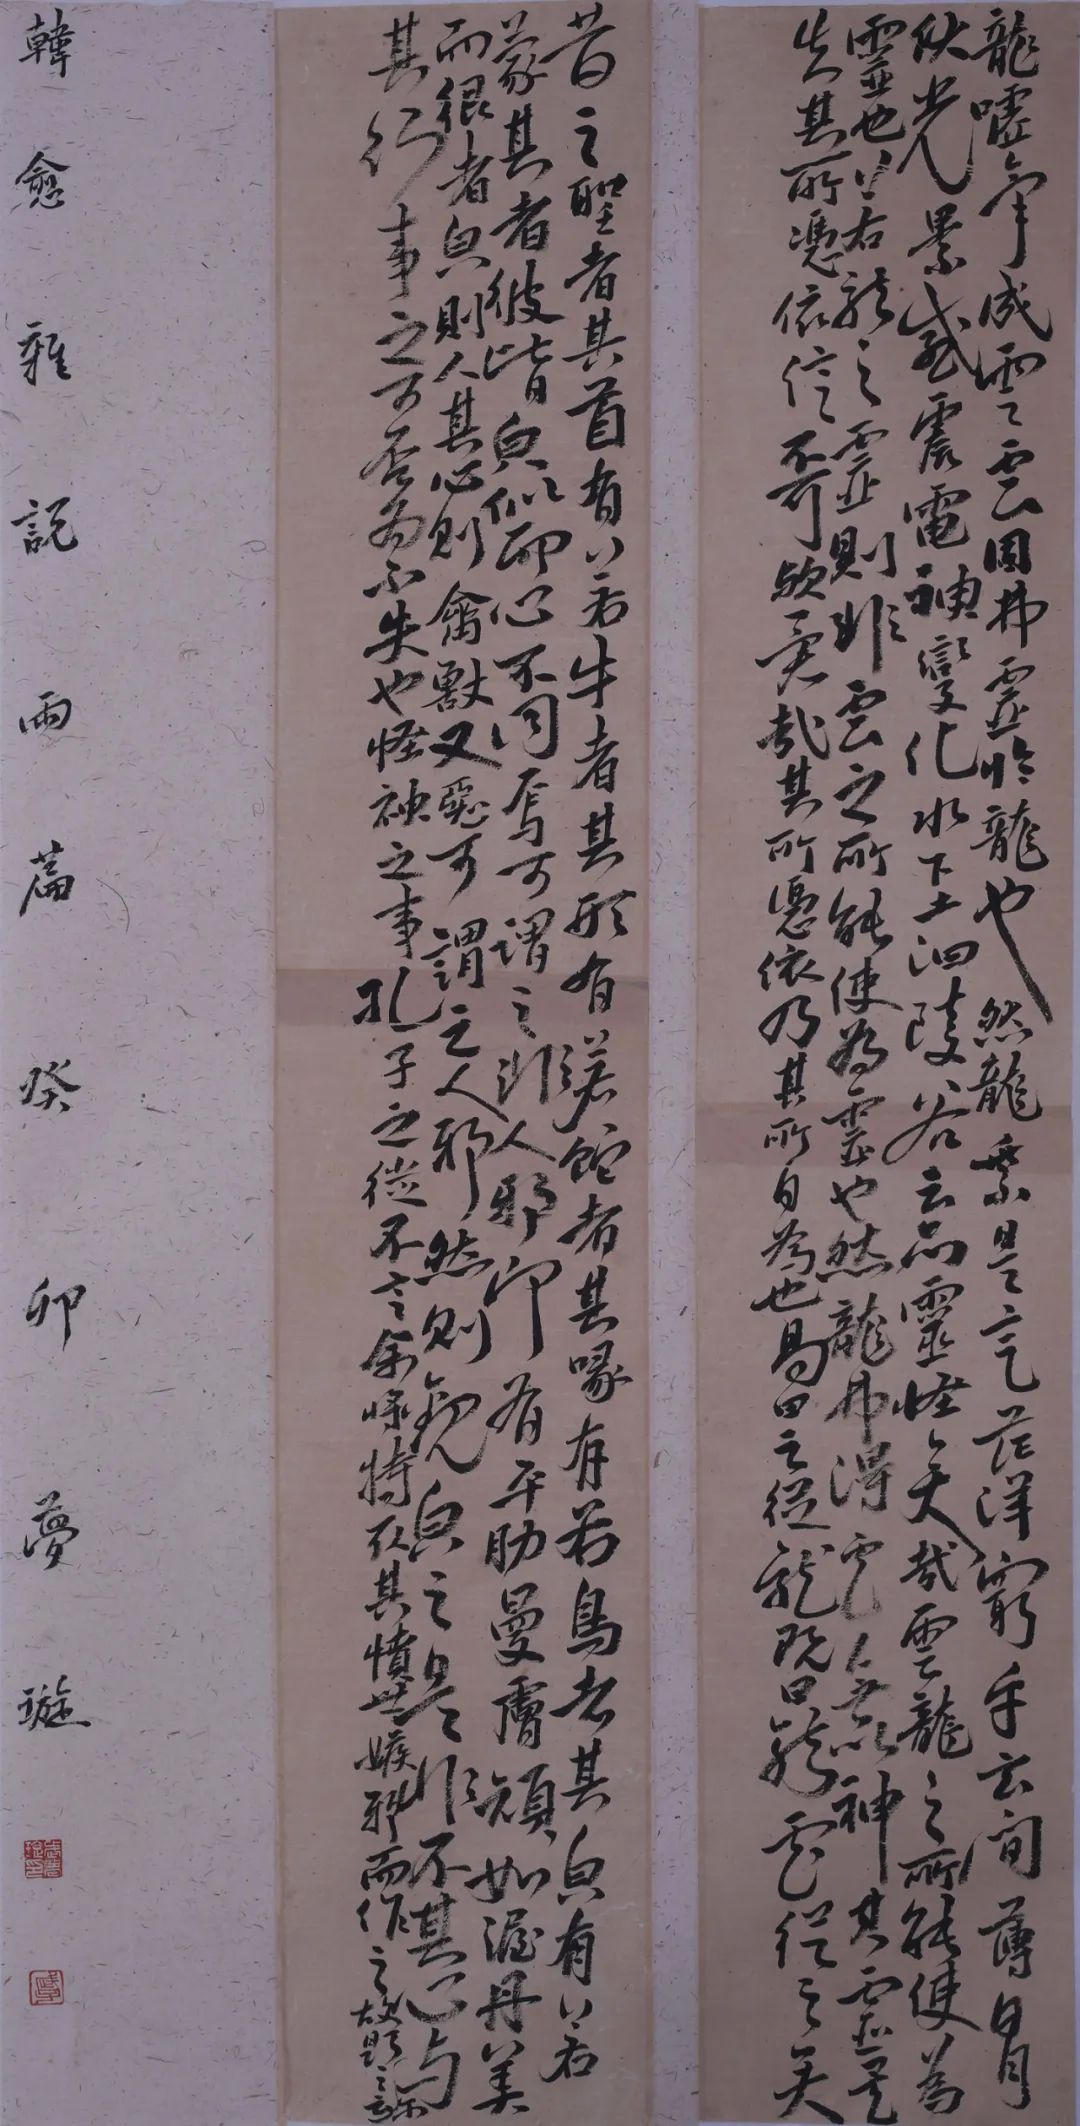 龍噓氣成雲雲固弗靈於龍也然龍乘是氣茫洋窮乎玄间薄日月
伏光景感震電神變化水下土汩陵谷云亦靈怪矣哉雲龍之所能使為
靈也若龍之靈則非雲之所能使為靈也然龍弗得雲無以神其靈矣
失其所憑依信不可歟異哉其所憑依乃其所自為也易曰云從龍既曰龍雲從之矣
昔之聖者其首有若牛者其形有若蛇者其喙有若鳥者其皃有若
蒙其者彼皆皃似而心不同焉可謂之非人邪即有平肋曼膚顏如渥丹美
而很者皃則人其心則禽獸又惡可謂之人邪然則觀皃之是非不其心与
其行事之可否為不失也怪神之事孔子之徒不言余將特取其憤世嫉邪而作之故題之云爾
韓愈雜說兩篇癸卯夢璇